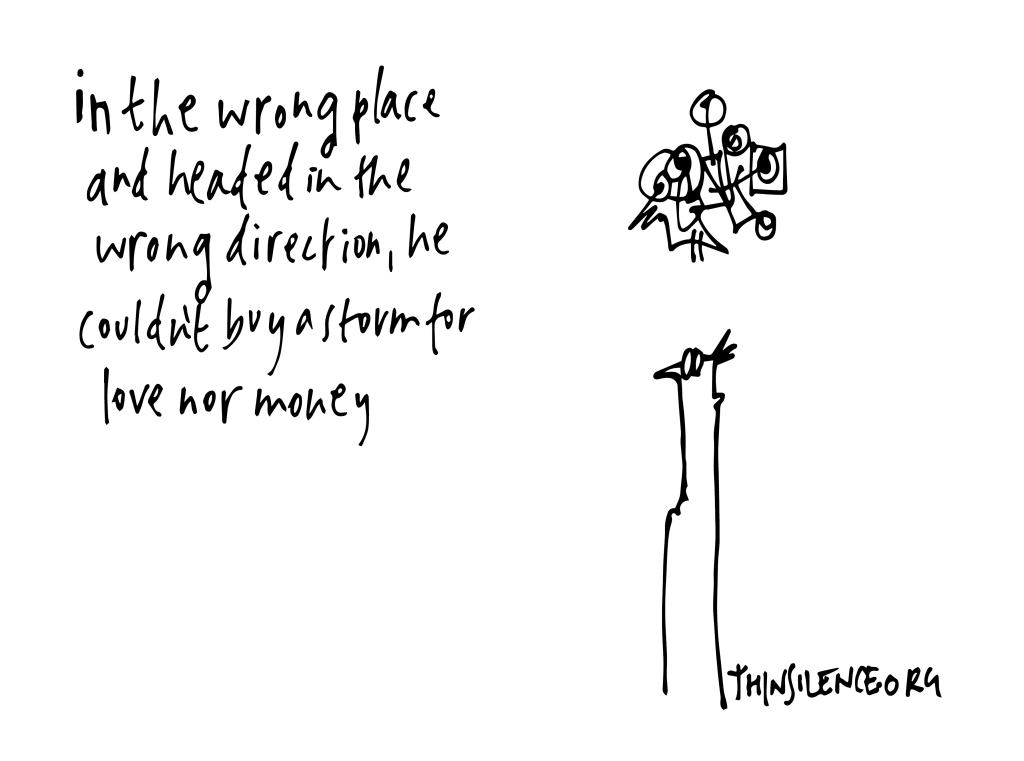 in the wrong place
and headed in the
wrong direction, he
couldn't buy a storm for
love nor money
THINSILENCE.ORG